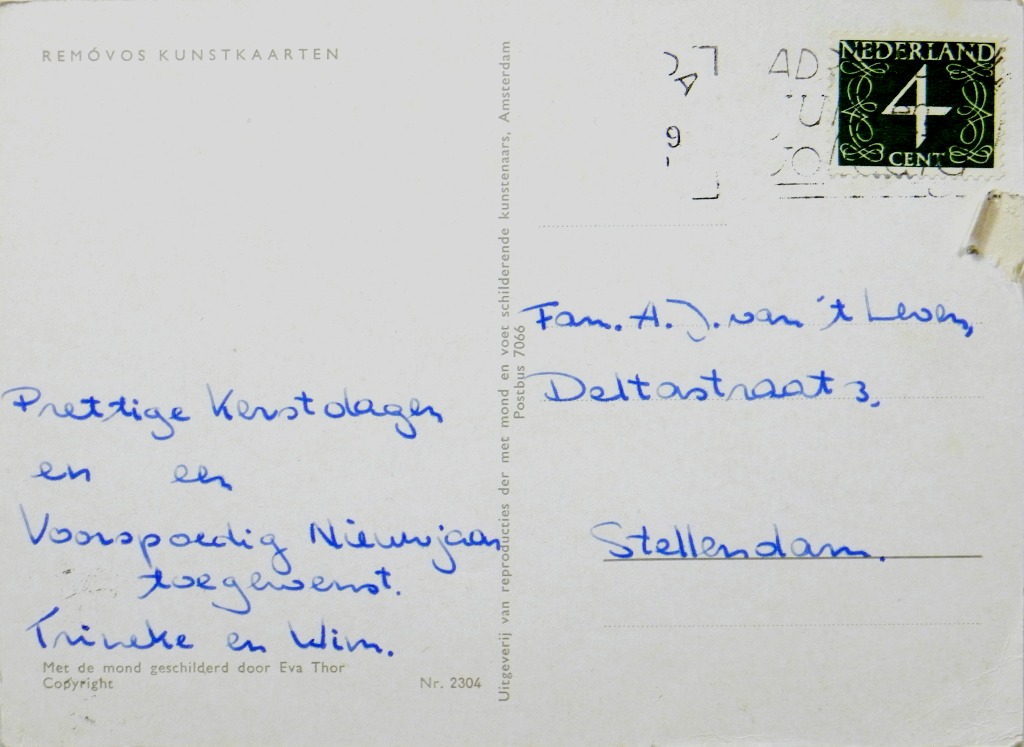 REMÓVOS KUNSTKAARTEN
Prettige Kerstdagen
en een
Voorspoedig Nieuwjaar
toegewenst.
Trineke en Wim.
Met de mond geschilderd door Eva Thor
Copyright
Nr. 2304
Uitgeverij van reproducties der met mond en voet schilderende kunstenaars, Amsterdam
Postbus 7066
NEDERLAND
4
CENT
Fam. A. J. van 't Leven,
Deltastraat 3,
Stellendam.